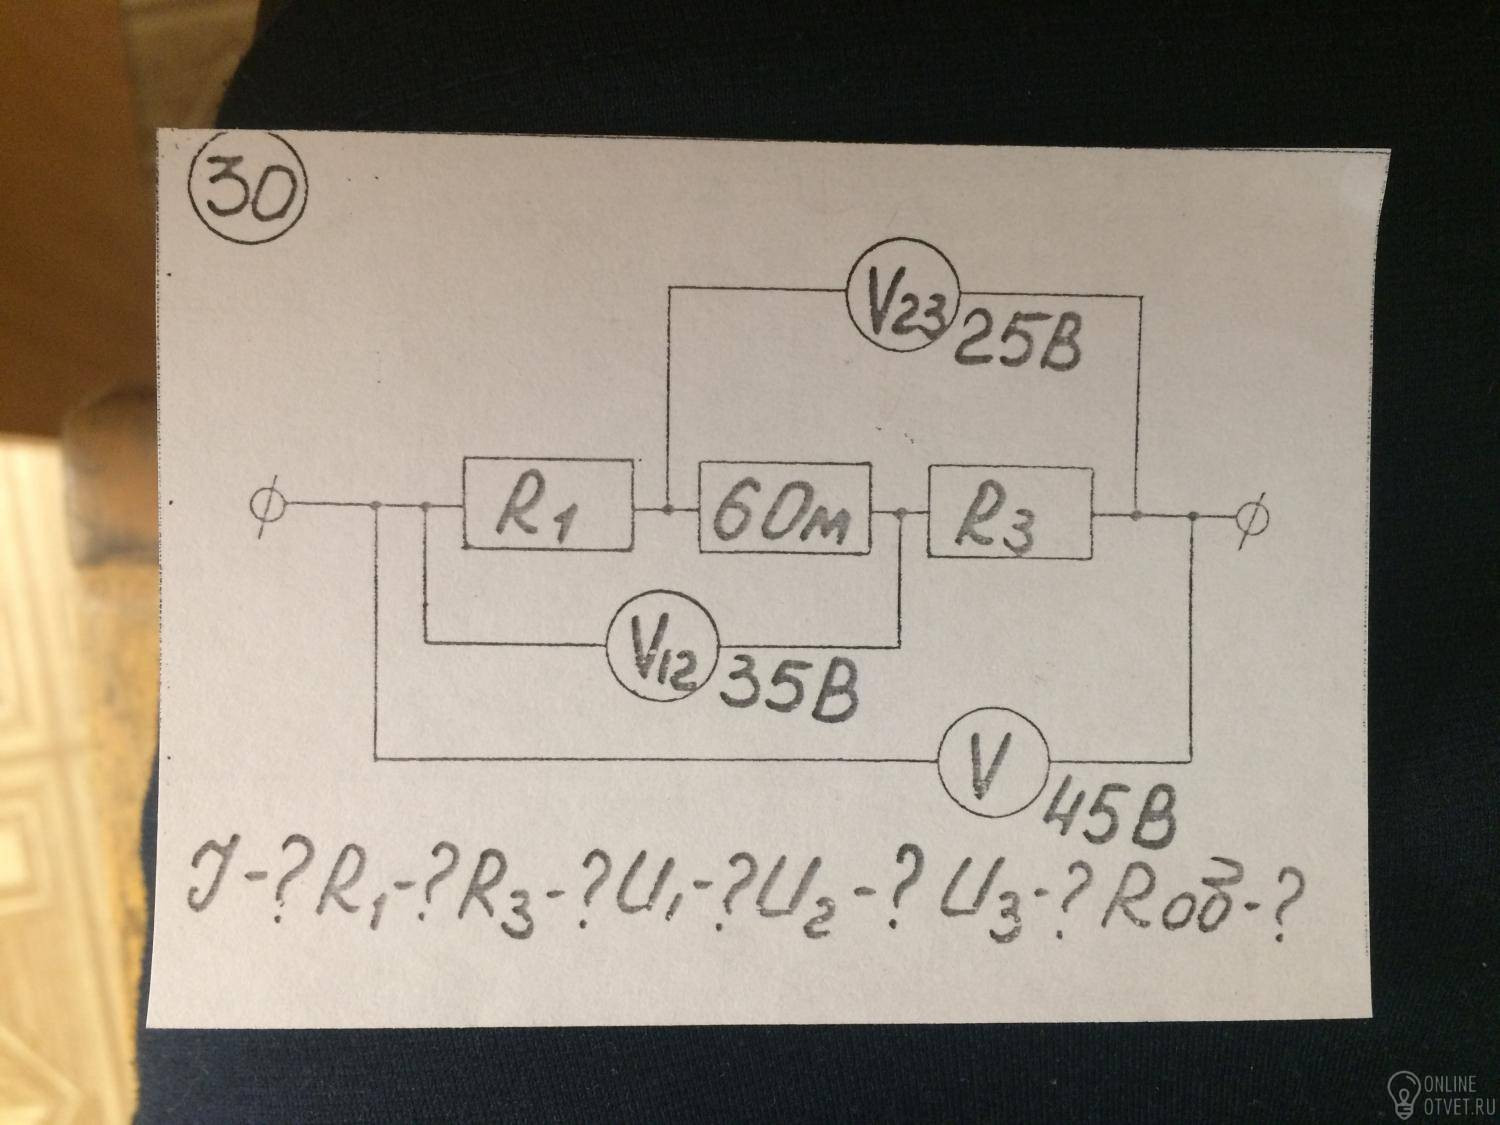 30
V23 25В
R1 6Ом R3
V12 35В
V 45В
J-? R1-? R3-? U1-? U2-? U3-? Rоб-?
ONLINE
OTVET.RU